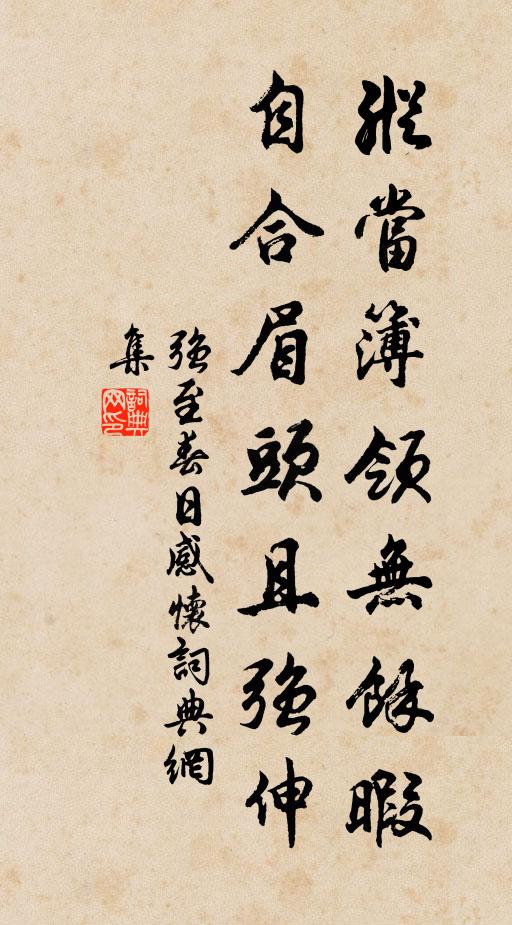 縱當簿領無餘暇
自合眉頭且強伸
強至春日感懷詞典網
集
詞典
网印